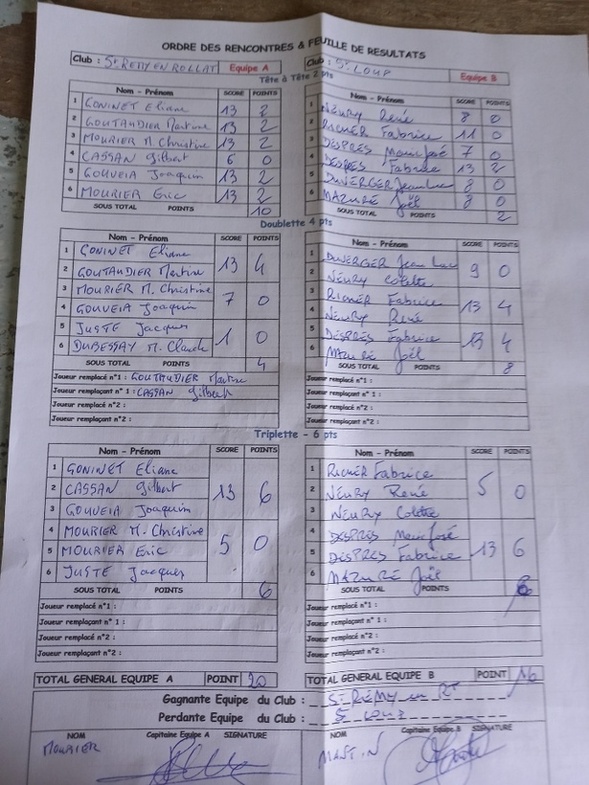 ORDRE DES RENCONTRES & FEUILLE DE RESULTATS
Club : St REMY EN ROLLAT Equipe A Club : St LOUP Equipe B
Tête à Tête 2 pts
Nom - Prénom SCORE POINTS Nom - Prénom SCORE POINTS
1 GONINET Eliane 13 2 1 NEURY René 8 0
2 GOUTAUDIER Martine 13 2 2 RIGNER Fabrice 11 0
3 MOURIER M. Christine 13 2 3 DESPRES Marie José 7 0
4 CASSAN Gilbert 6 0 4 DESPRES Fabrice 13 2
5 GOUVEIA Joaquim 13 2 5 DUVERGER Jean Luc 8 0
6 MOURIER Eric 13 2 6 MAZURÉ Joël 8 0
SOUS TOTAL POINTS 10 SOUS TOTAL POINTS 2
Doublette 4 pts
Nom - Prénom SCORE POINTS Nom - Prénom SCORE POINTS
1 GONINET Eliane 13 4 1 DUVERGER Jean Luc 9 0
2 GOUTAUDIER Martine 2 NEURY Colette
3 MOURIER M. Christine 7 0 3 RIGNER Fabrice 13 4
4 GOUVEIA Joaquim 4 NEURY René
5 JUSTE Jacques 1 0 5 DESPRES Fabrice 13 4
6 DUBESSAY M. Claude 6 MAZURÉ Joël
SOUS TOTAL POINTS 4 SOUS TOTAL POINTS 8
Joueur remplacé n°1 : GOUTAUDIER Martine Joueur remplacé n°1 :
Joueur remplaçant n°1 : CASSAN Gilbert Joueur remplaçant n°1 :
Joueur remplacé n°2 : Joueur remplacé n°2 :
Joueur remplaçant n°2 : Joueur remplaçant n°2 :
Triplette - 6 pts
Nom - Prénom SCORE POINTS Nom - Prénom SCORE POINTS
1 GONINET Eliane 13 6 1 RIGNER Fabrice 5 0
2 CASSAN Gilbert 2 NEURY René
3 GOUVEIA Joaquim 3 NEURY Colette
4 MOURIER M. Christine 5 0 4 DESPRES Marie José 13 6
5 MOURIER Eric 5 DESPRES Fabrice
6 JUSTE Jacques 6 MAZURÉ Joël
SOUS TOTAL POINTS 6 SOUS TOTAL POINTS 6
Joueur remplacé n°1 : Joueur remplacé n°1 :
Joueur remplaçant n°1 : Joueur remplaçant n°1 :
Joueur remplacé n°2 : Joueur remplacé n°2 :
Joueur remplaçant n°2 : Joueur remplaçant n°2 :
TOTAL GENERAL EQUIPE A POINT 20 TOTAL GENERAL EQUIPE B POINT 16
Gagnante Equipe du Club : St RÉMY en Rt
Perdante Equipe du Club : S LOUP
NOM Capitaine Equipe A SIGNATURE NOM Capitaine Equipe B SIGNATURE
MOURIER MARTIN